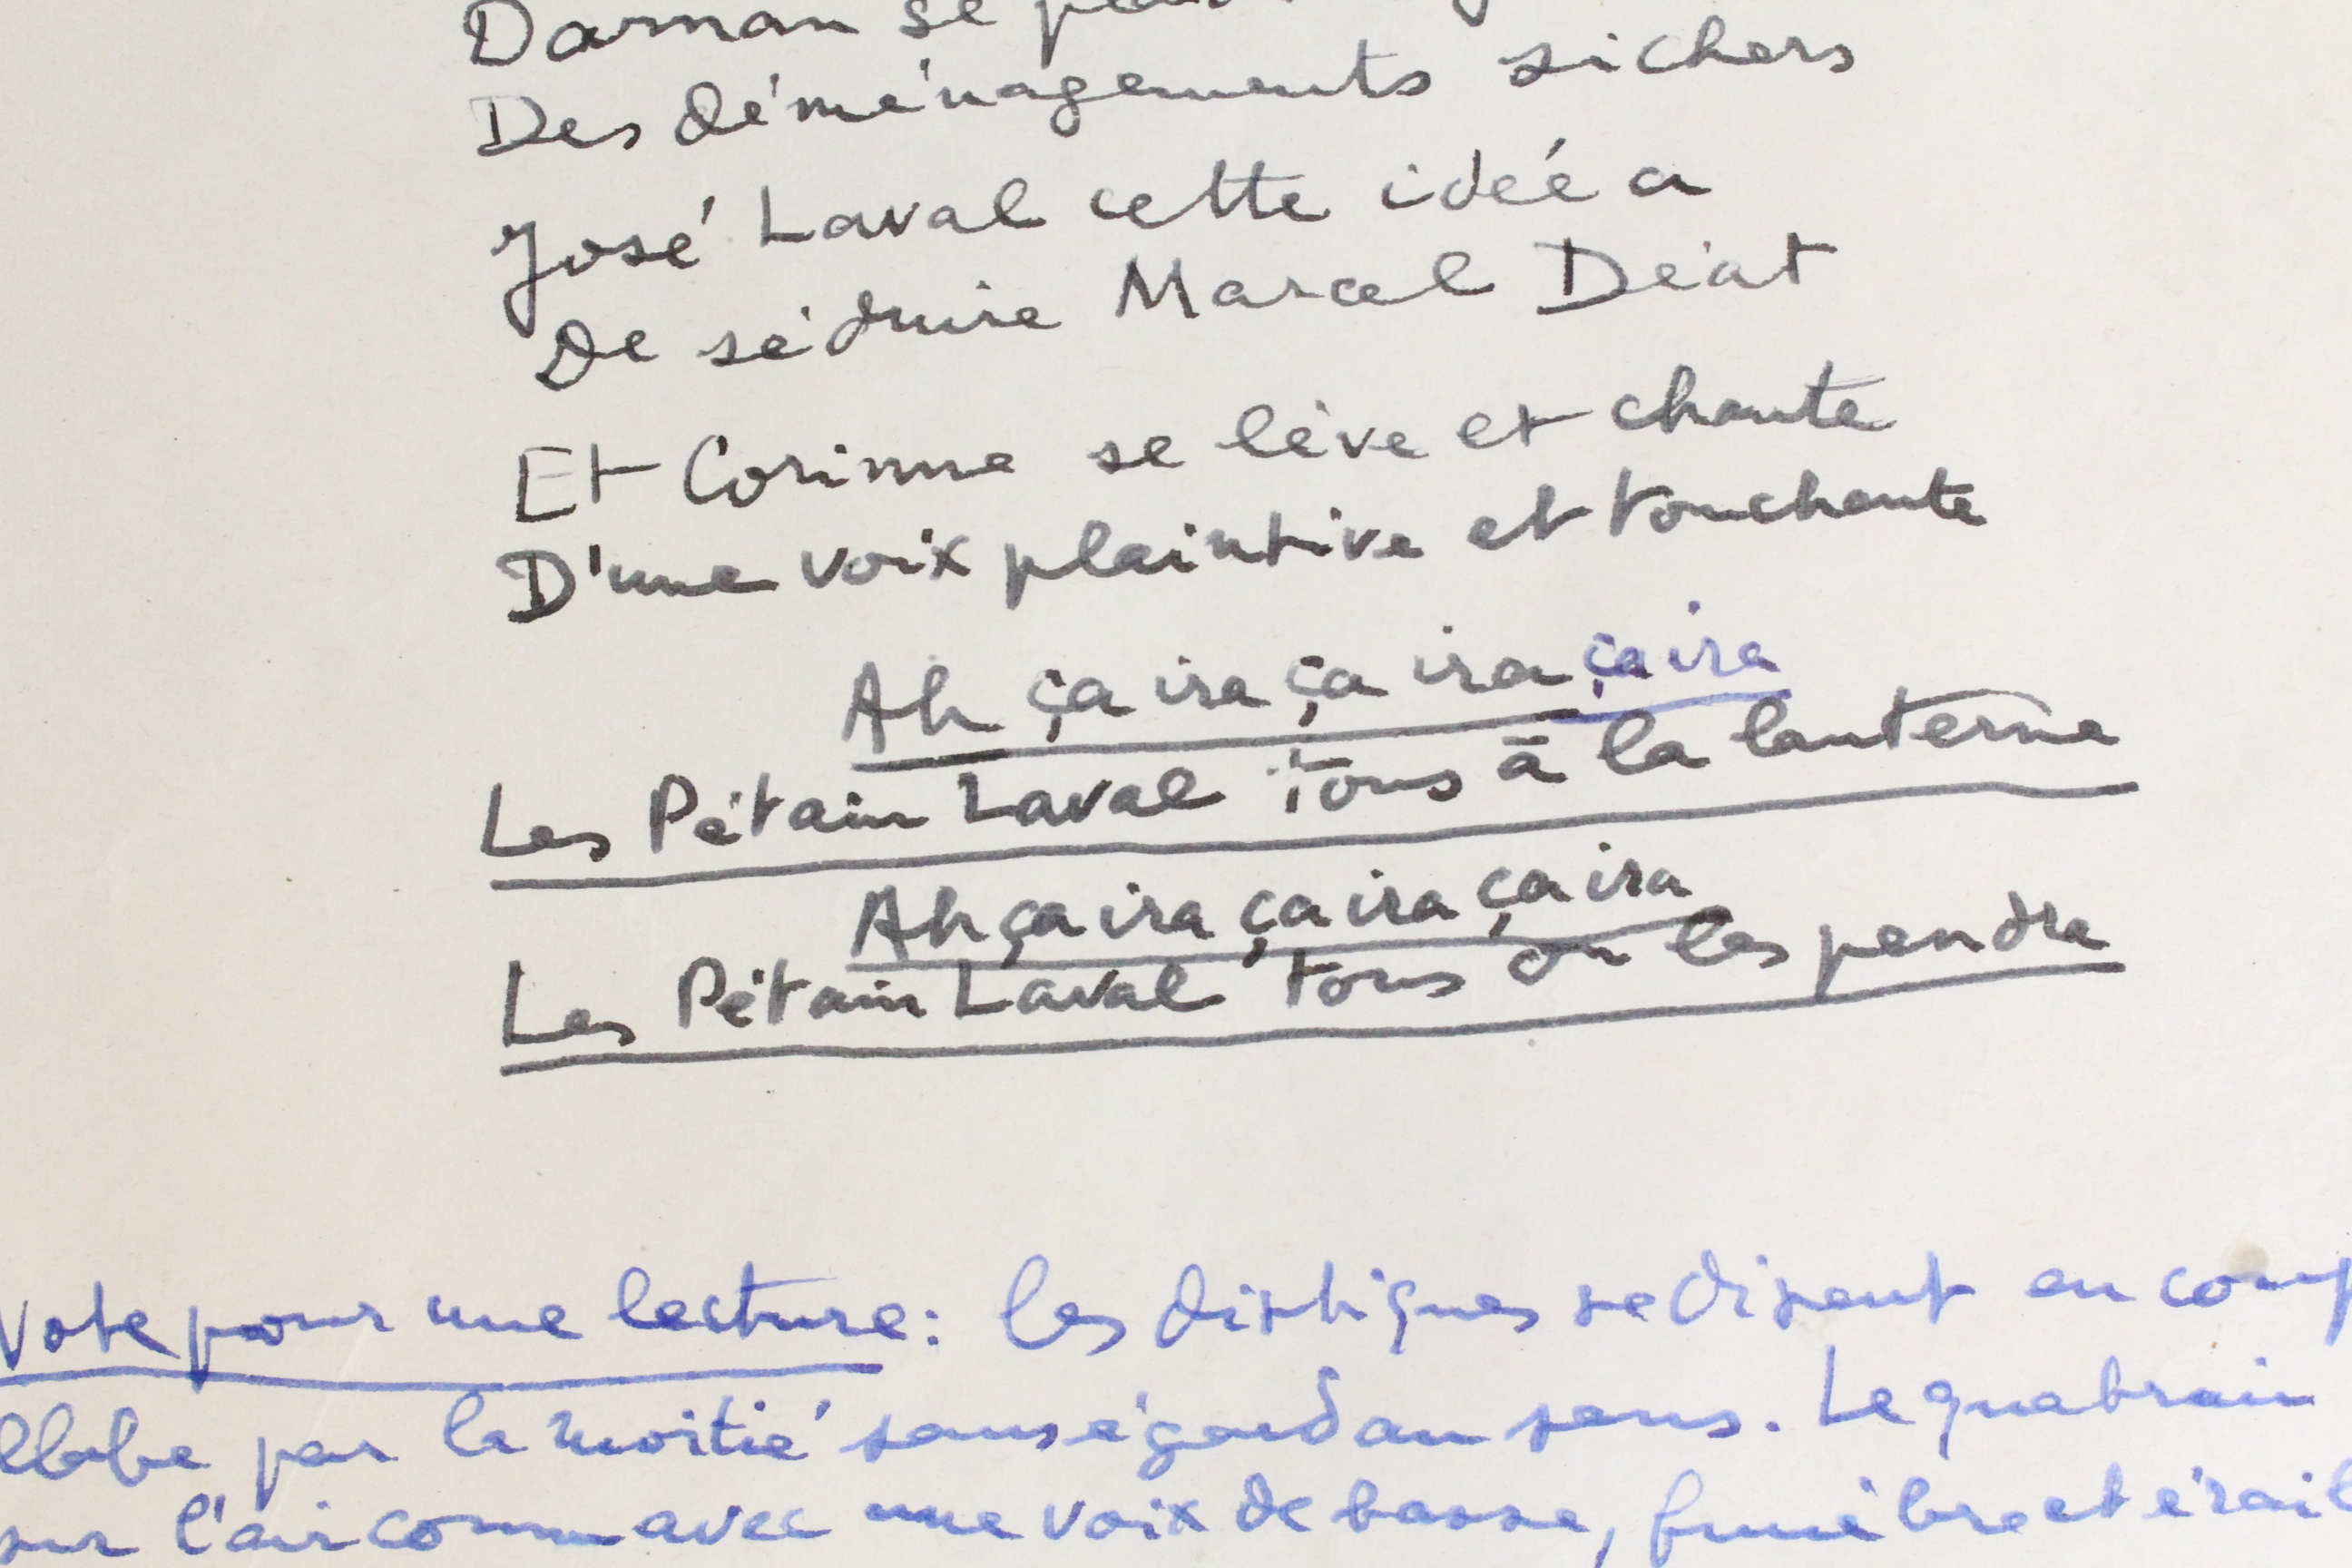 Darnan se
Des déménagements si chers
José Laval cette idée a
De séduire Marcel Déat
Et Corinne se lève et chante
D'une voix plaintive et touchante
Ah ça ira ça ira ça ira
Les Pétain Laval tous à la lanterne
Ah ça ira ça ira ça ira
Les Pétain Laval tous on les pendra
Note pour une lecture : les distiques se disent en
par la moitié sans égard au sens. Le quatrain
sur l'air connu avec une voix de basse, funèbre et érail